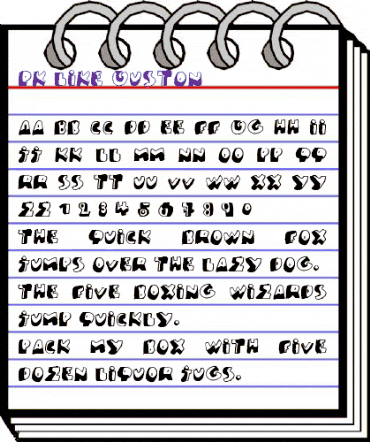 PK LIKE GUSTON
AA BB CC DD EE FF GG HH II
JJ KK LL MM NN OO PP QQ
RR SS TT UU VV WW XX YY
ZZ 1 2 3 4 5 6 7 8 9 0
THE QUICK BROWN FOX
JUMPS OVER THE LAZY DOG.
THE FIVE BOXING WIZARDS
JUMP QUICKLY.
PACK MY BOX WITH FIVE
DOZEN LIQUOR JUGS.